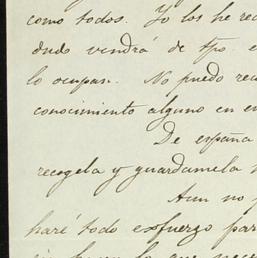 como todos. Yo los he re
dudo vendrá de tpo. e
lo ocupan. No puedo re
conocimiento alguno en e
De españa
recogela y guardamela
Aun no p
haré todo esfuerzo par
lo que